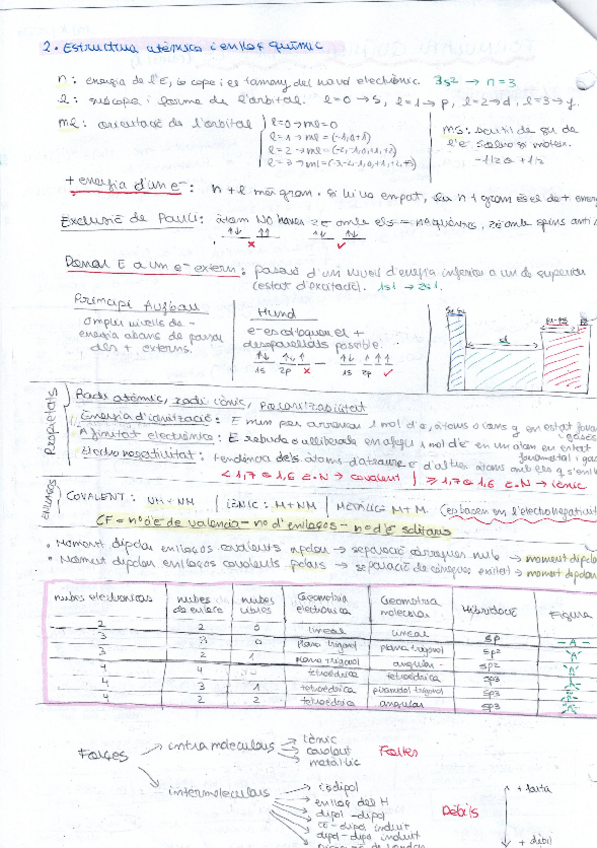 2. Estructura atòmica i enllaç químic
n: energia de l'E, és capa i es tamany del núvol electrònic. 3s² → n=3
l: subcapa i forma de l'orbital. l=0→s, l=1→p, l=2→d, l=3→f.
ml: orientació de l'orbital
l=0→ml=0
l=1→ml=(-1,0,+1)
l=2→ml=(-2,-1,0,+1,+2)
l=3→ml=(-3,-2,-1,0,+1,+2,+3)
ms: sentit de gir de
l'e⁻ sobre si mateix.
-1/2 o +1/2
+ energia d'un e⁻: n + l més gran. Si hi ha empat, sa n + gran és el de +
Exclusió de Pauli: àtom NO haver 2e⁻ amb els = nº quàntics, 2e⁻ amb spins anti
Donar E a un e⁻ extern: passarà d'un nivell d'energia inferior a un de superior
(estat d'excitació). 1s1 → 2s1.
Principi Aufbau
omplir nivells de -
energia abans de passar
als + externs.
Hund
e⁻ es col·loquen el +
desaparellats possible.
1s 2p × 1s 2p ✓
Propietats
Radi atòmic, radi iònic, polaritzabilitat
Energia d'ionització: E mín per arrencar 1 mol d'e⁻, àtoms o ions g en estat
gasós
Afinitat electrònica: E rebuda o alliberada en afegir 1 mol d'e⁻ en un àtom en estat
fonamental i
Electronegativitat: tendència dels àtoms d'atreure e⁻ d'altres àtoms amb els q
< 1,7 o 1,6 E.N → covalent | ≥ 1,7 o 1,6 E.N → iònic
enllaços
COVALENT: NM+NM | IÒNIC: M+NM | METÀL·LIC: M+M (es basen en l'electronegativitat
CF = nº d'e⁻ de valència - nº d'enllaços - nº d'e⁻ solitaris
• Moment dipolar enllaços covalents apolars → separació càrregues nul·la → moment
• Moment dipolar enllaços covalents polars → separació de càrregues → moment
nubes electròniques | nubes de enlace | nubes libres | Geometria electrònica | Geometria molecular | Hibridació | Figura
2 | 2 | 0 | lineal | lineal | sp | –A–
3 | 3 | 0 | plana trigonal | plana trigonal | sp²
3 | 2 | 1 | plana trigonal | angular | sp²
4 | 4 | tetraèdrica | tetraèdrica | sp3
4 | 3 | 1 | tetraèdrica | piramidal trigonal | sp3
4 | 2 | 2 | tetraèdrica | angular | sp3
Forces
intramoleculars
iònic
covalent
metàl·lic
Fortes
intermoleculars
ió-dipol
enllaç del H
dipol-dipol
ió-dipol induït
dipol-dipol induït
Dèbils
+ forta
+ dèbil